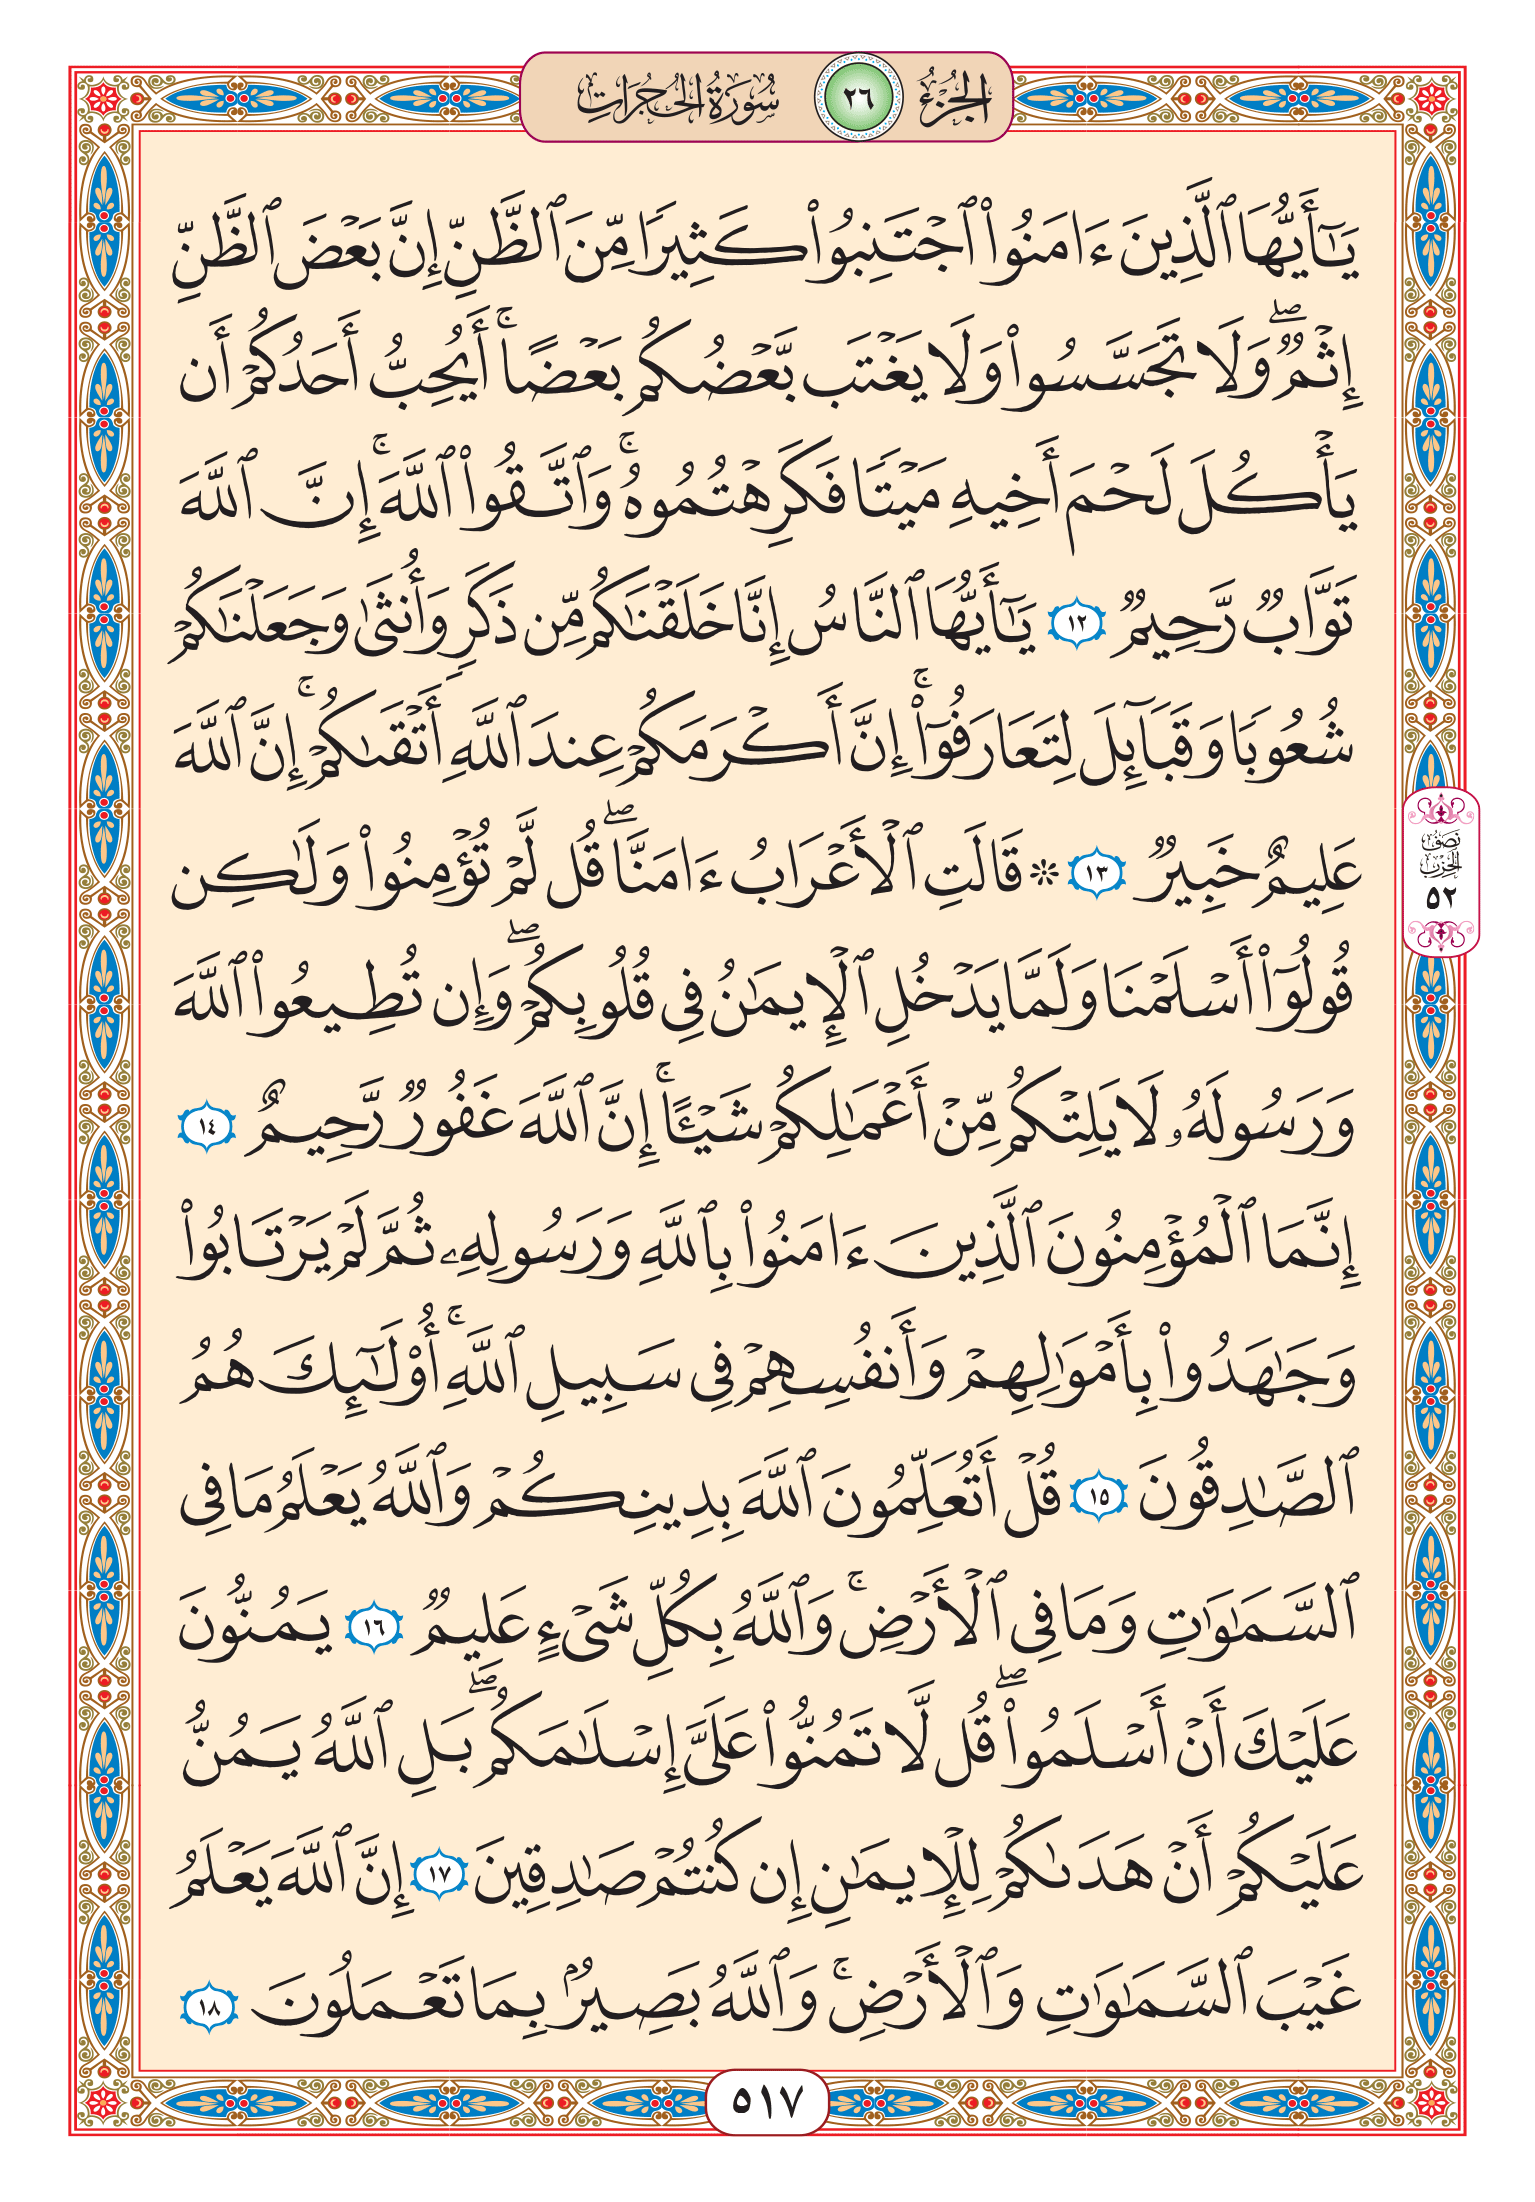 الجزء ٢٦ سورة الحجرات
يَٰٓأَيُّهَا ٱلَّذِينَ ءَامَنُوا۟ ٱجْتَنِبُوا۟ كَثِيرًا مِّنَ ٱلظَّنِّ إِنَّ بَعْضَ ٱلظَّنِّ
إِثْمٌ ۖ وَلَا تَجَسَّسُوا۟ وَلَا يَغْتَب بَّعْضُكُم بَعْضًا ۚ أَيُحِبُّ أَحَدُكُمْ أَن
يَأْكُلَ لَحْمَ أَخِيهِ مَيْتًا فَكَرِهْتُمُوهُ ۚ وَٱتَّقُوا۟ ٱللَّهَ ۚ إِنَّ ٱللَّهَ
تَوَّابٌ رَّحِيمٌ ١٢ يَٰٓأَيُّهَا ٱلنَّاسُ إِنَّا خَلَقْنَٰكُم مِّن ذَكَرٍ وَأُنثَىٰ وَجَعَلْنَٰكُمْ
شُعُوبًا وَقَبَآئِلَ لِتَعَارَفُوٓا۟ ۚ إِنَّ أَكْرَمَكُمْ عِندَ ٱللَّهِ أَتْقَىٰكُمْ ۚ إِنَّ ٱللَّهَ
عَلِيمٌ خَبِيرٌ ١٣ ۞ قَالَتِ ٱلْأَعْرَابُ ءَامَنَّا ۖ قُل لَّمْ تُؤْمِنُوا۟ وَلَٰكِن
قُولُوٓا۟ أَسْلَمْنَا وَلَمَّا يَدْخُلِ ٱلْإِيمَٰنُ فِى قُلُوبِكُمْ ۖ وَإِن تُطِيعُوا۟ ٱللَّهَ
وَرَسُولَهُۥ لَا يَلِتْكُم مِّنْ أَعْمَٰلِكُمْ شَيْـًٔا ۚ إِنَّ ٱللَّهَ غَفُورٌ رَّحِيمٌ ١٤
إِنَّمَا ٱلْمُؤْمِنُونَ ٱلَّذِينَ ءَامَنُوا۟ بِٱللَّهِ وَرَسُولِهِۦ ثُمَّ لَمْ يَرْتَابُوا۟
وَجَٰهَدُوا۟ بِأَمْوَٰلِهِمْ وَأَنفُسِهِمْ فِى سَبِيلِ ٱللَّهِ ۚ أُو۟لَٰٓئِكَ هُمُ
ٱلصَّٰدِقُونَ ١٥ قُلْ أَتُعَلِّمُونَ ٱللَّهَ بِدِينِكُمْ وَٱللَّهُ يَعْلَمُ مَا فِى
ٱلسَّمَٰوَٰتِ وَمَا فِى ٱلْأَرْضِ ۚ وَٱللَّهُ بِكُلِّ شَىْءٍ عَلِيمٌ ١٦ يَمُنُّونَ
عَلَيْكَ أَنْ أَسْلَمُوا۟ ۖ قُل لَّا تَمُنُّوا۟ عَلَىَّ إِسْلَٰمَكُم ۖ بَلِ ٱللَّهُ يَمُنُّ
عَلَيْكُمْ أَنْ هَدَىٰكُمْ لِلْإِيمَٰنِ إِن كُنتُمْ صَٰدِقِينَ ١٧ إِنَّ ٱللَّهَ يَعْلَمُ
غَيْبَ ٱلسَّمَٰوَٰتِ وَٱلْأَرْضِ ۚ وَٱللَّهُ بَصِيرٌۢ بِمَا تَعْمَلُونَ ١٨
نصف
الحزب
٥٢
٥١٧